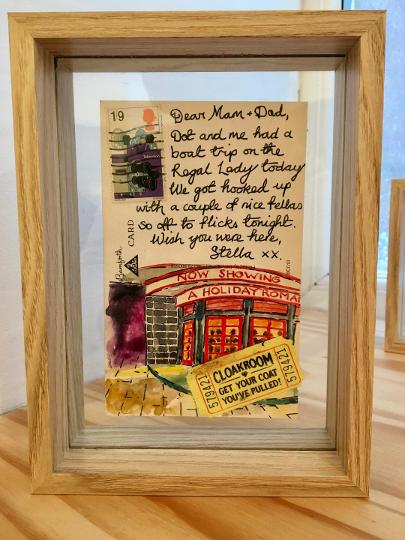 1/9
Dear Mam + Dad,
Dot and me had a
boat trip on the
Regal Lady today
We got hooked up
with a couple of nice fellas
So off to flicks tonight.
Wish you were here,
Stella xx.
CARD
Bamforth
NOW SHOWING
A HOLIDAY ROMA
CLOAKROOM
GET YOUR COAT
YOU'VE PULLED!
579421
579421